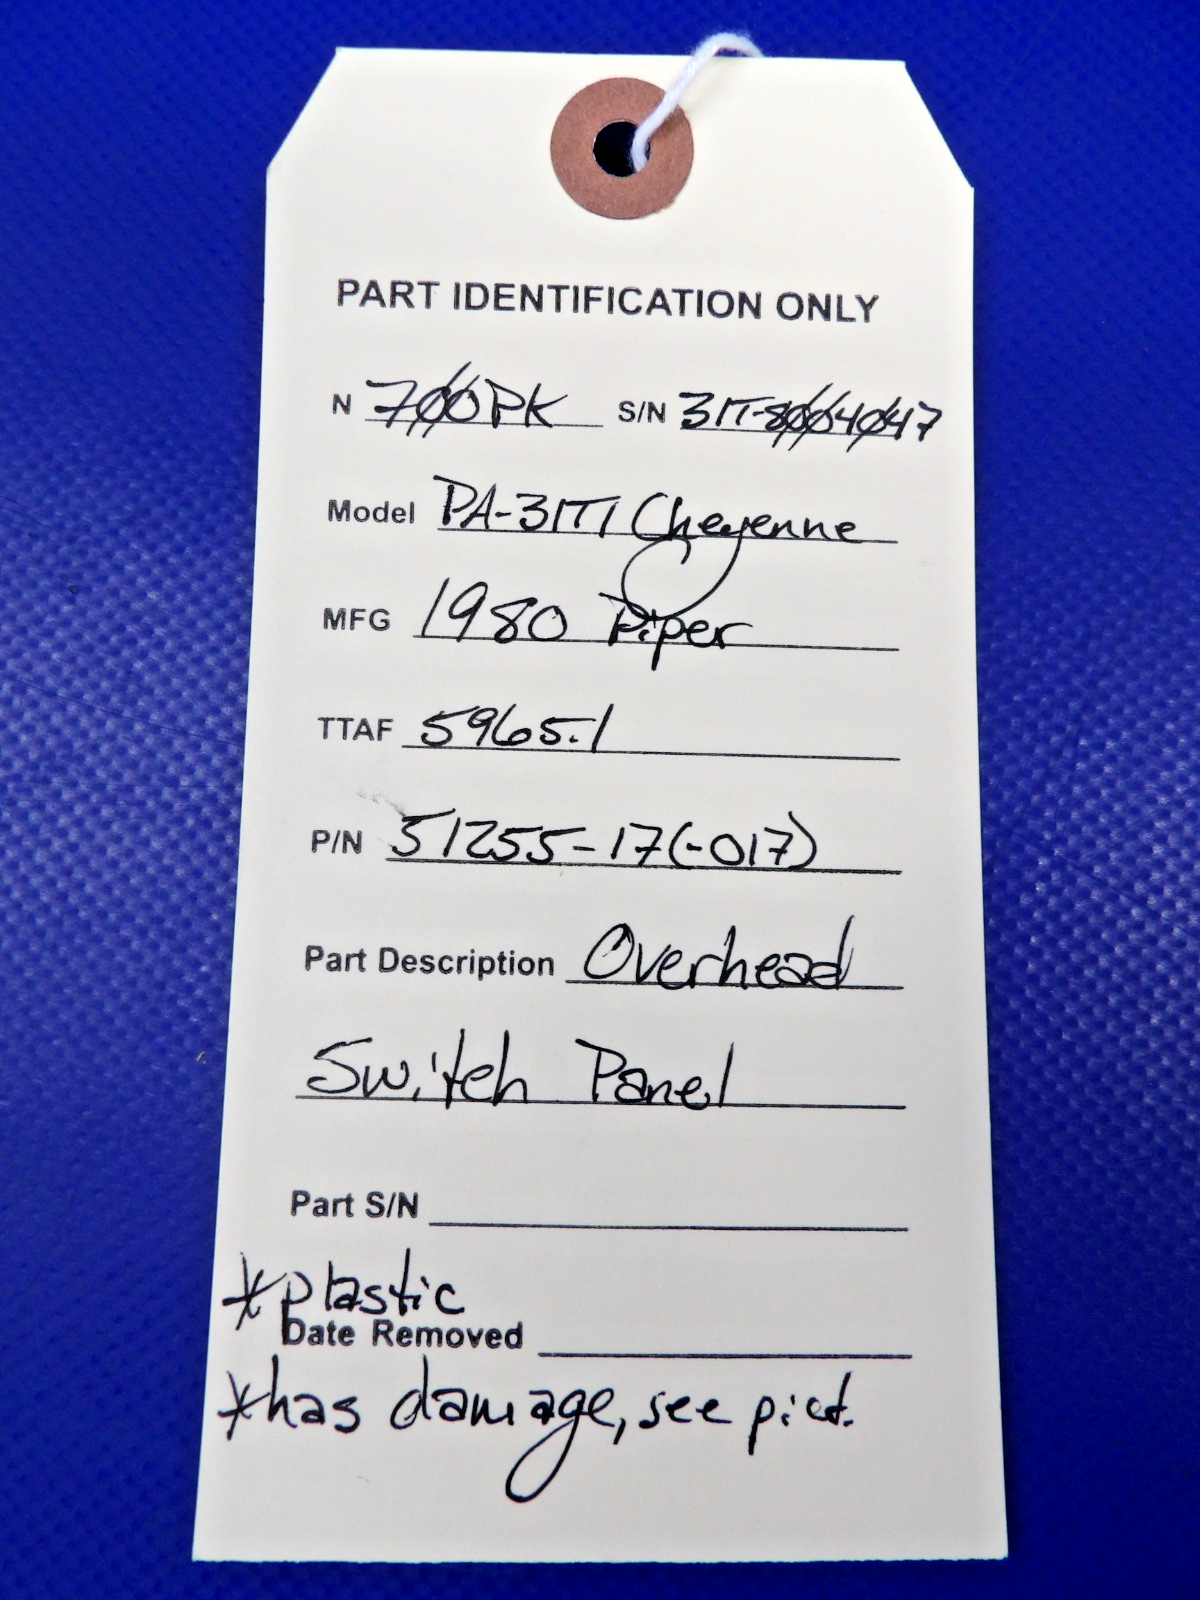 PART IDENTIFICATION ONLY
N 700PK S/N 31T-8004047
Model PA-31T1 Cheyenne
MFG 1980 Piper
TTAF 5965.1
P/N 51255-17(-017)
Part Description Overhead
Switch Panel
Part S/N
*plastic
Date Removed
*has damage, see pict.